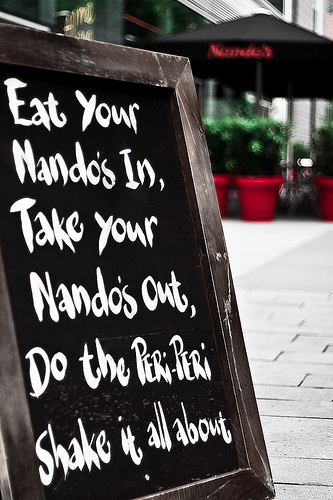 Nando's
Eat Your
Nando's In,
Take Your
Nando's Out,
Do the PERi-PERi
Shake it all about.